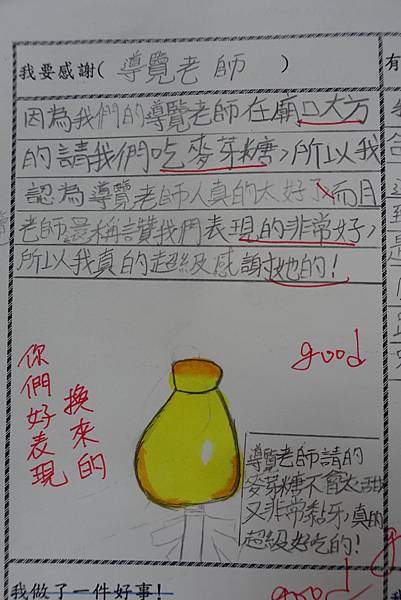 我要感謝(導覽老師)
因為我們的導覽老師在廟口大方
的請我們吃麥芽糖,所以我
認為導覽老師人真的太好了而且
老師還稱讚我們表現的非常好,
所以我真的超級感謝她的!
good
你們好表現
換來的
導覽老師請的
麥芽糖不會太甜
又非常黏牙,真的
超級好吃的!
我做了一件好事!
good
有